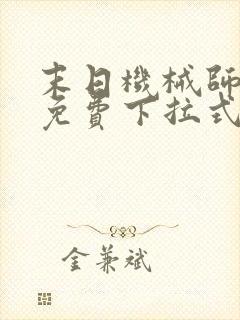 末日機械師
免費下拉式
金兼斌